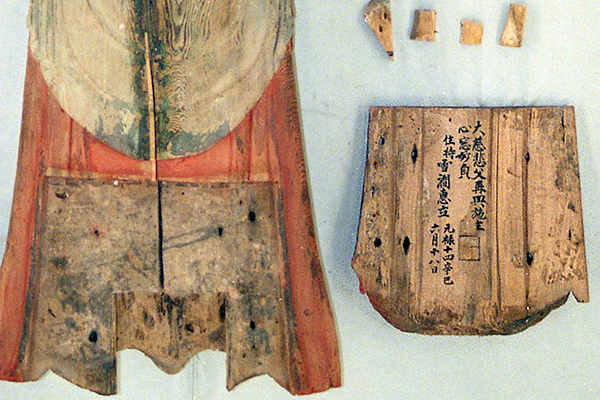 大慈悲父再興施主
心窓妙貞
住持雪澗惠立
元禄十四辛巳
六月十八日